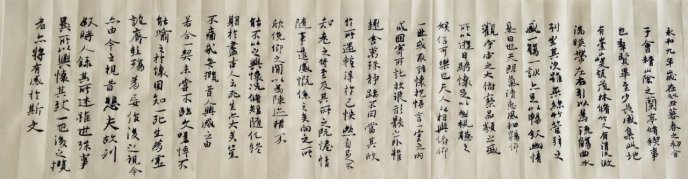 永和九年歲在癸丑暮春之初會
于會稽山陰之蘭亭脩禊事
也羣賢畢至少長咸集此地
有崇山峻領茂林脩竹又有清流激
湍映帶左右引以為流觴曲水
列坐其次雖無絲竹管弦之
盛一觴一詠亦足以暢敘幽情
是日也天朗氣清惠風和暢仰
觀宇宙之大俯察品類之盛
所以遊目騁懷足以極視聽之
娛信可樂也夫人之相與俯仰
一世或取諸懷抱悟言一室之內
或因寄所託放浪形骸之外雖
趣舍萬殊靜躁不同當其欣
於所遇暫得於己快然自足不
知老之將至及其所之既倦情
隨事遷感慨係之矣向之所
欣俛仰之間以為陳迹猶不
能不以之興懷況脩短隨化終
期於盡古人云死生亦大矣豈
不痛哉每攬昔人興感之由
若合一契未嘗不臨文嗟悼不
能喻之於懷固知一死生為虛
誕齊彭殤為妄作後之視今
亦由今之視昔悲夫故列
敘時人錄其所述雖世殊事
異所以興懷其致一也後之攬
者亦將有感於斯文